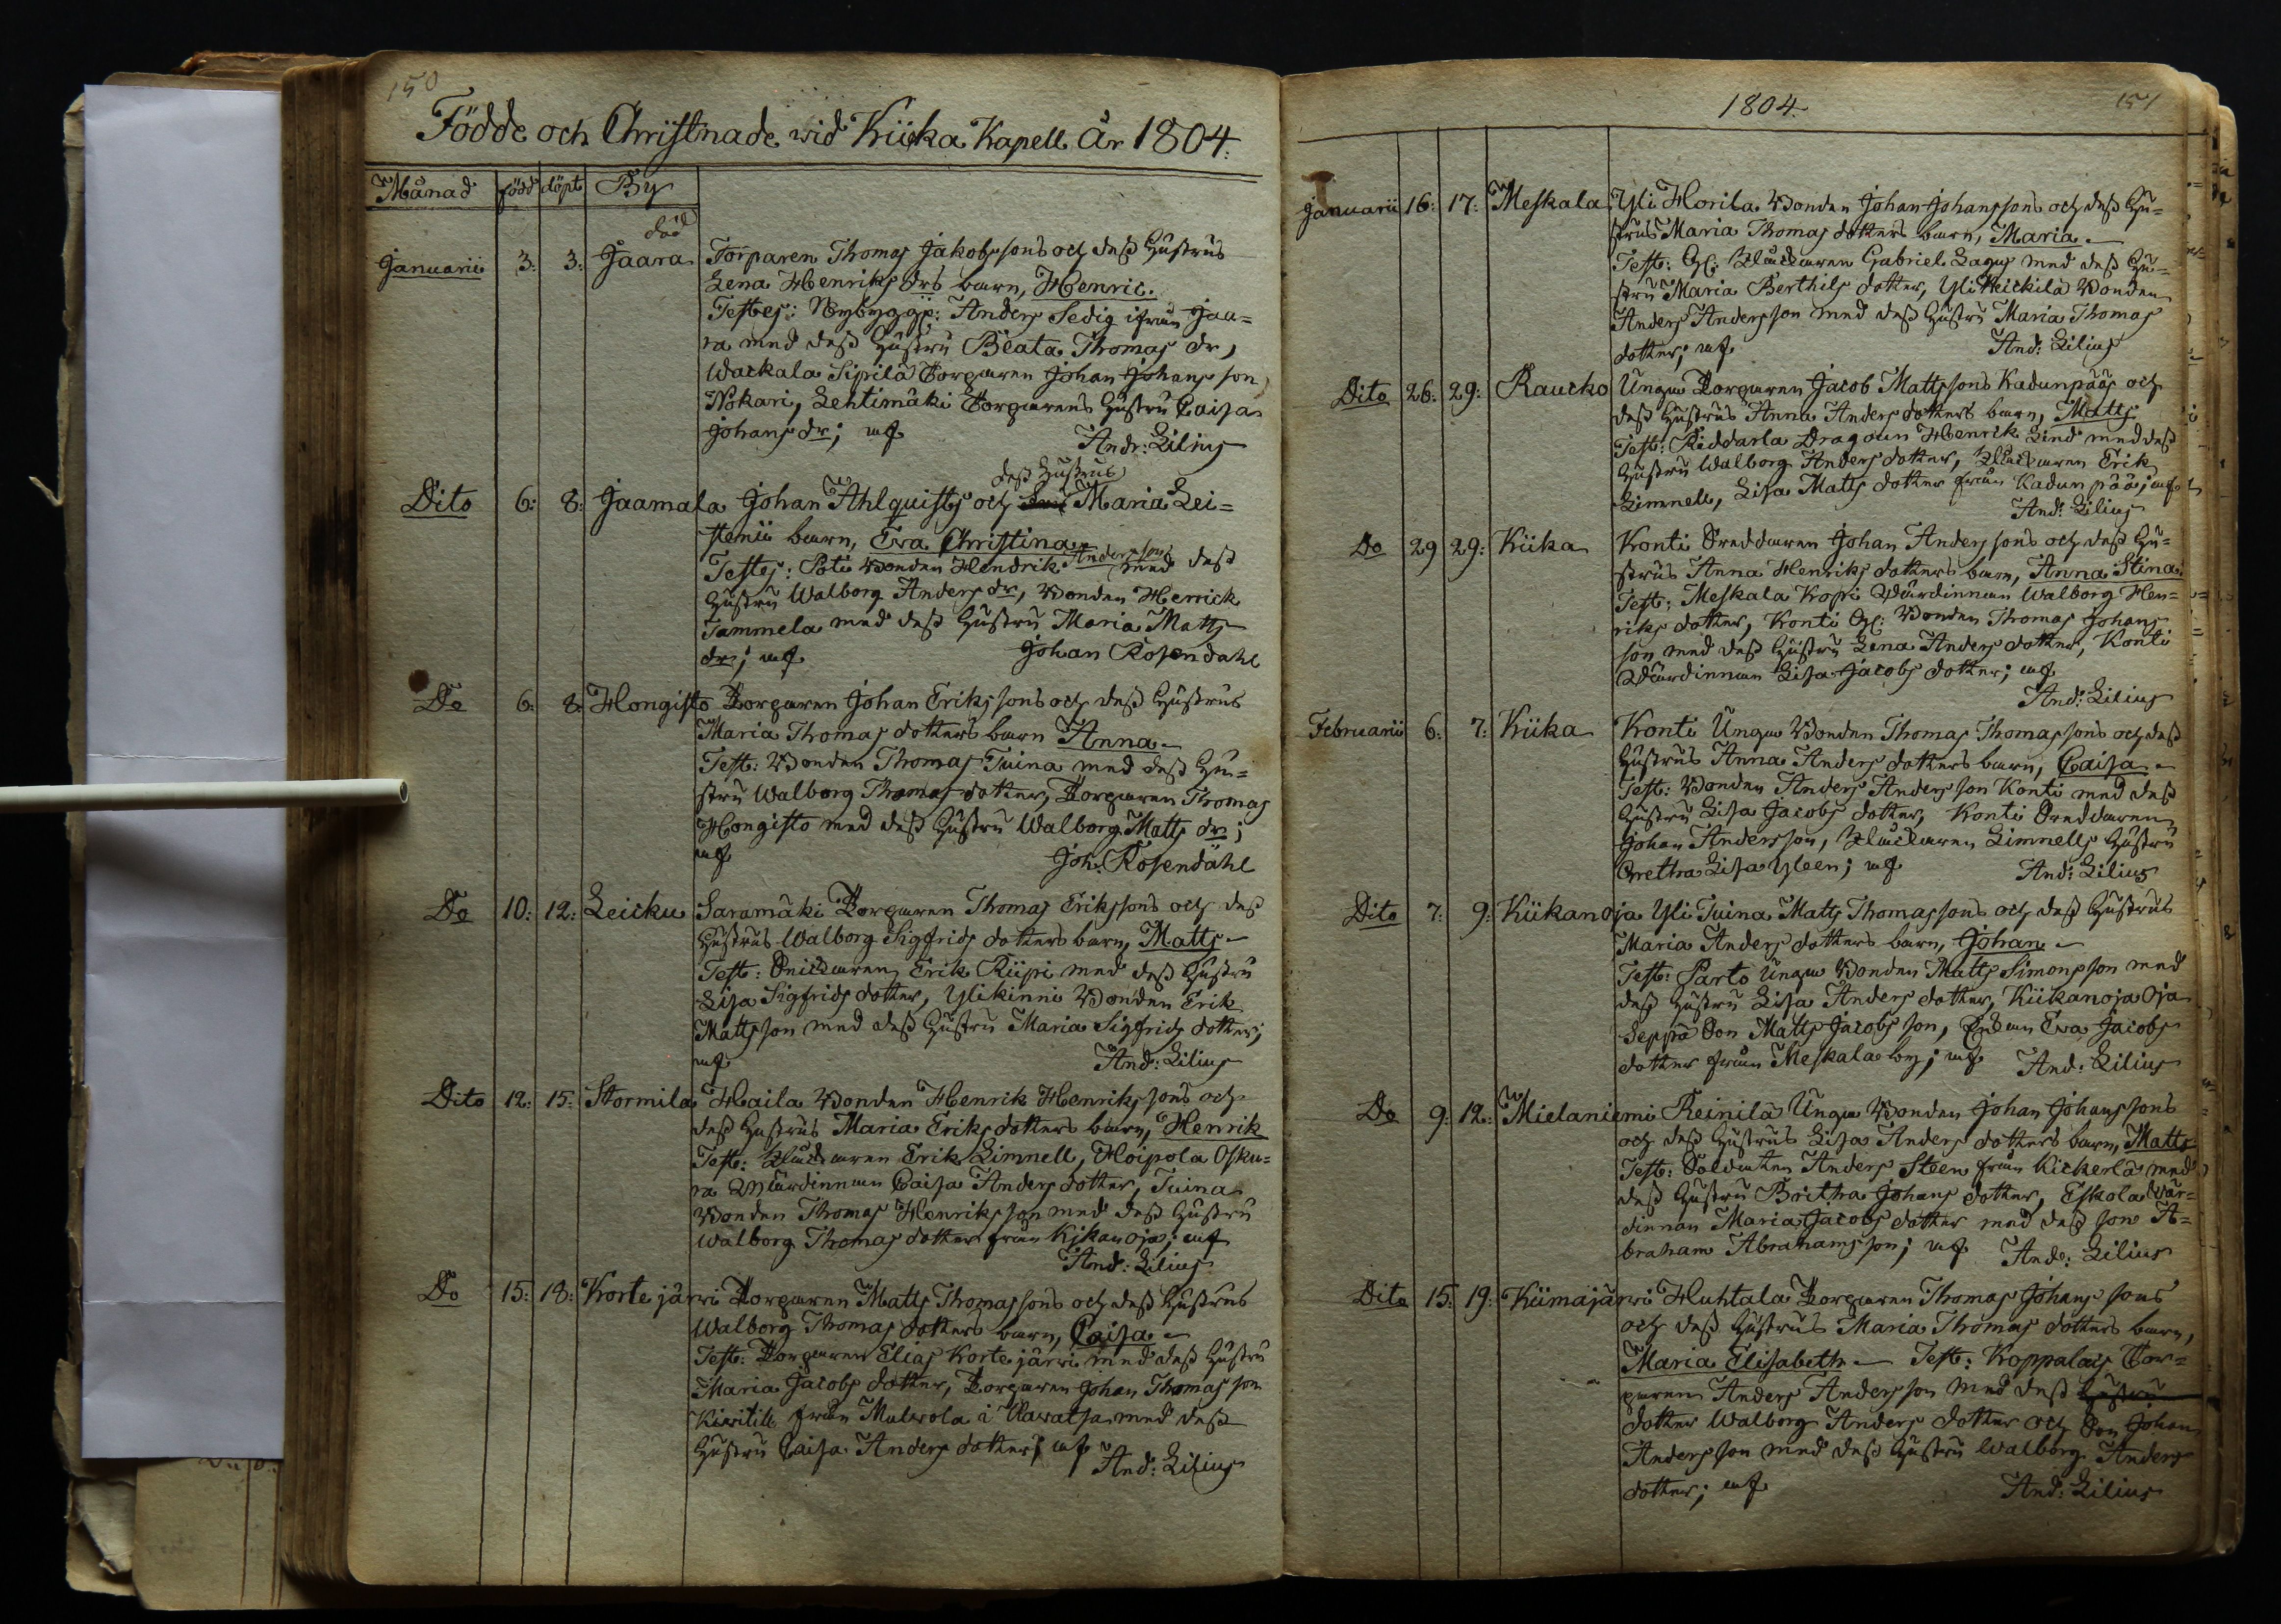 150
Födde och Christnade wid Kiika Kapell År 1804.
Månad född döpt By
död
Januarii 3: 3: Jaara Torparen Thomas Jakobssons och deß Hustrus
Lena Henriks drs barn, Henric.
Testes: Nybygg: Anders Sedig ifrån Jaa=
ra med deß Hustru Beata Thomas dr,
Wackala Sipilä Torparen Johan Johansson
Nokari, Lehtimäki Torparens Hustru Caisa
Johans dr; mf
Andr: Lilius
deß Hustrus
Dito 6: 8: Jaamala Johan Ahlquists och Maria Lei=
stenii barn, Eva Christina
Anderssons
Testes: Poti Bonden Hendrik med deß
Hustru Walborg Anders dr, Bonden Henrick
Tammela med deß Hustru Maria Matts
dr; mf Johan Rosendahl
Do 6: 8: Hongisto Torparen Johan Erikssons och deß Hustrus
Maria Thomas dotters barn Anna
Test: Bonden Thomas Tuina med deß Hu=
stru Walborg Thomas dotter, Torparen Thomas
Hongisto med deß Hustru Walborg Matts dr;
mf Joh: Rosendahl
Do 10: 12: Leicku Saramäki Torparen Thomas Erikssons och deß
Hustrus Walborg Sigfrids dotters barn, Matts
Test: Snickaren Erik Riipi med deß Hustru
Lisa Sigfrids dotter, Ylikinni Bonden Erik
Mattsson med deß Hustru Maria Sigfrids dotter;
mf And: Lilius
Dito 12: 15: Stormila Haila Bonden Henrik Henrikssons och
deß Hustrus Maria Eriks dotters barn, Henrik
Test: Klockaren Erik Limnell, Hoipola Osku=
ra Wärdinnan Caisa Anders dotter, Tuina
Bonden Thomas Henriksson med deß Hustru
Walborg Thomas dotter från Kikanoja; mf
And: Lilius
Do 15: 18: Kortejärwi Torparen Matts Thomassons och deß Hustrus
Walborg Thomas dotters barn, Caisa
Test: Torparen Elias Kortejärwi med deß Hustru
Maria Jacobs dotter, Torparen Johan Thomasson
från i med deß
Hustru Caisa Anders dotter; mf
And: Lilius
1804. 151
Januarii 16: 17: Meskala Yli Horila Bonden Johan Johanssons och deß Hu=
strus Maria Thomas dotters barn, Maria
Test: Gl: Klockaren Gabriel Lagus med deß Hu=
stru Maria Berthils dotter, Yli Heickilä Bonden
Anders Andersson med deß Hustru Maria Thomas
dotter; mf And: Lilius
Dito 26: 29: Raucko Unga Torparen Jacob Mattssons Kadunpääs och
deß Hustrus Anna Anders dotters barn, Matts
Test: Riddarla Dragoun Henrik Lind med deß
Hustru Walborg Anders dotter, Klockaren Erik
Limnell, Lisa Matts dotter från Kadunpää; mf
And: Lilius
Do 29 29: Kiika Konti Skreddaren Johan Anderssons och deß Hu=
strus Anna Henriks dotters barn, Anna Stina
Test: Meskala Kopsi Wärdinnan Walborg Hen=
riks dotter, Konti Gl: Bonden Thomas Johans
son med deß Hustru Lena Anders dotter, Konti
Wärdinnan Lisa Jacobs dotter; mf
And: Lilius
Februarii 6: 7: Kiika Konti Unga Bonden Thomas Thomassons och deß
Hustrus Anna Anders dotters barn, Caisa
Test: Bonden Anders Andersson Konti med deß
Hustru Lisa Jacobs dotter, Konti Skreddaren
Johan Andersson, Klockaren Limnells Hustru
Gretha Lisa Yleen; mf And: Lilius
Dito 7: 9: Kiikanoja Yli Tuina Matts Thomassons och deß Hustrus
Maria Anders dotters barn, Johan
Test: Parto Unga Bonden Matts Simonsson med
deß Hustru Lisa Anders dotter, Kiikanoja Oja
Seppä Son Matts Jacobsson, Eva Jacobs
dotter från Meskala by; mf And: Lilius
Do 9: 12: Mielaniemi Reinilä Unga Bonden Johan Johanssons
och deß Hustrus Lisa Anders dotters barn, Matts
Test: Soldaten Anders Steen från Kickerlä med
deß Hustru Britha Johans dotter, Eskola Wär=
dinnan Maria Jacobs dotter med deß son A=
braham Abrahamsson; mf And: Lilius
Dito 15: 19: Kiimajärwi Huhtala Torparen Thomas Johanssons
och deß Hustrus Maria Thomas dotters barn,
Maria Elisabeth Test: Koppalais Tor=
paren Anders Andersson med deß Hustru
dotter Walborg Anders dotter och Son Johan
Andersson med deß Hustru Walborg Anders
dotter; mf And: Lilius